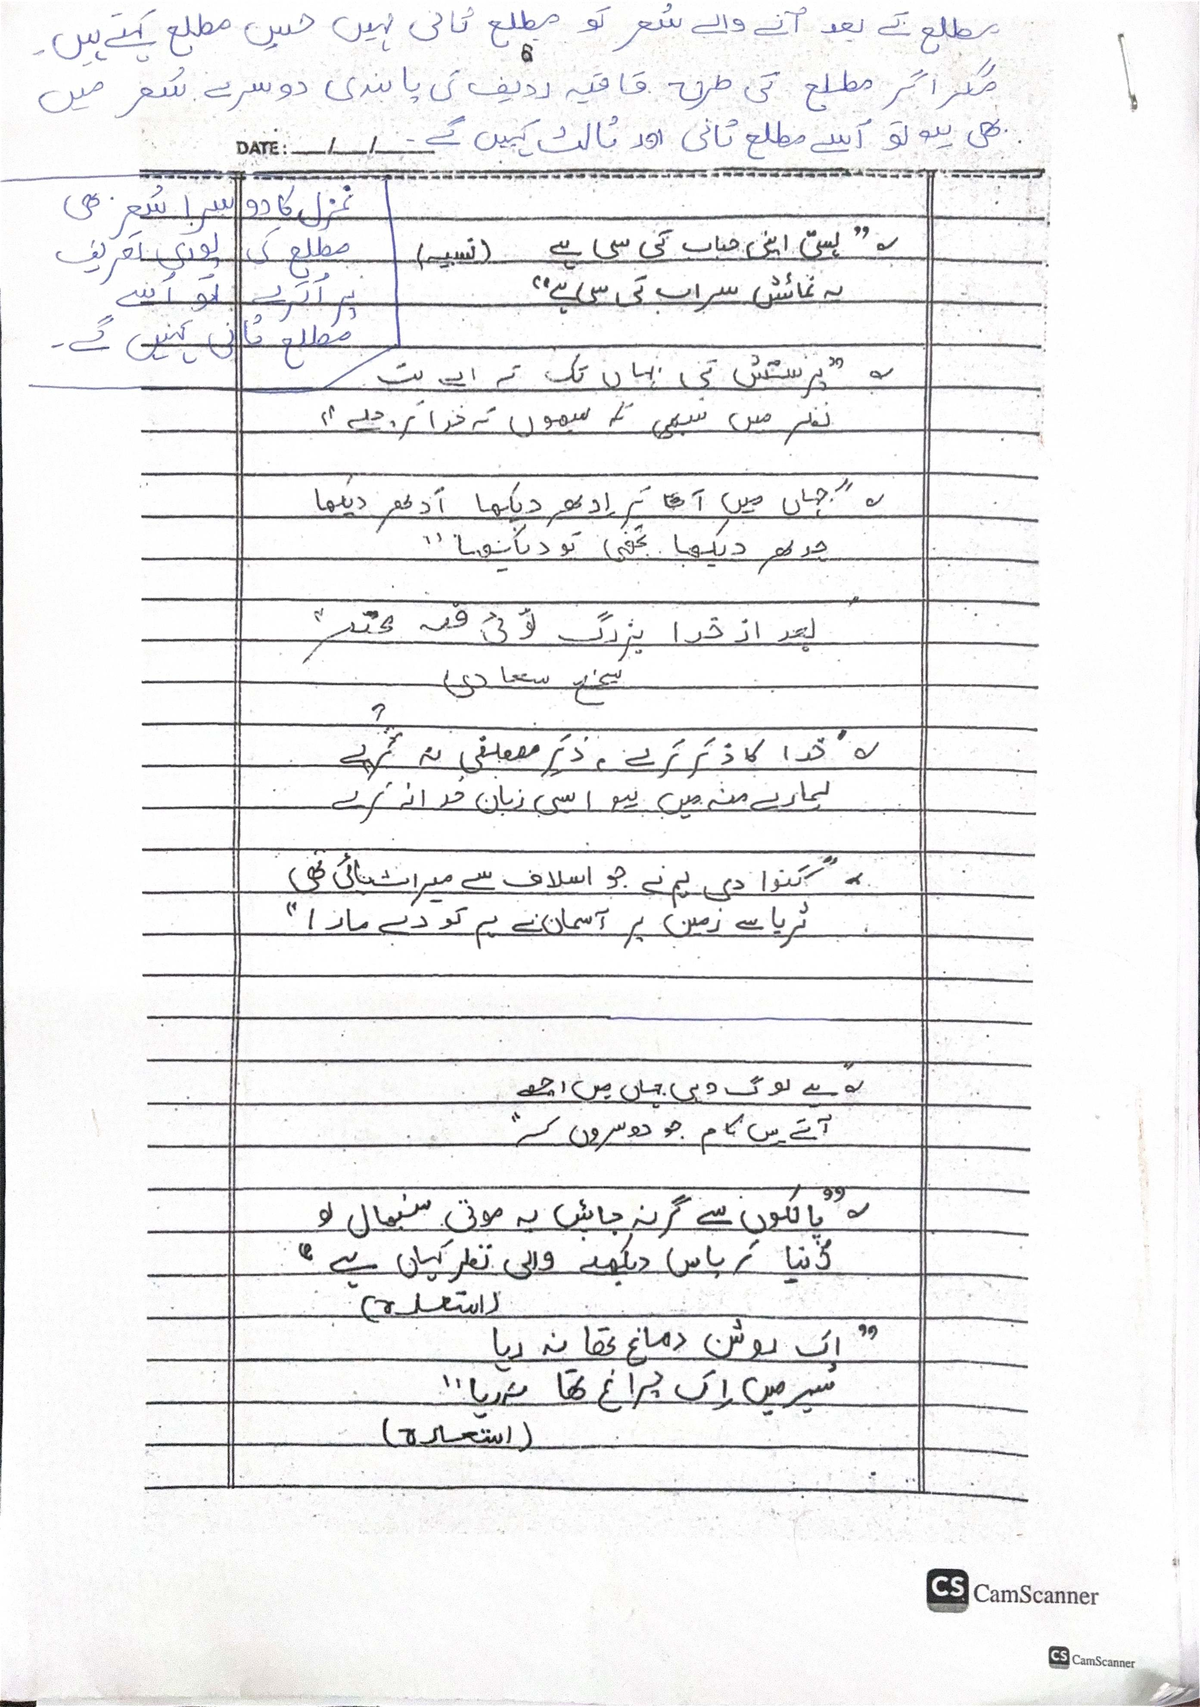 مطلع کے بعد آنے والے شعر کو مطلع ثانی نہیں حسنِ مطلع کہتے ہیں۔
6
مگر اگر مطلع کی طرح قافیہ ردیف کی پابندی دوسرے شعر میں
بھی ہو تو اُسے مطلع ثانی اور ثالث کہیں گے۔
DATE: __/__/__
غزل کا دوسرا شعر بھی
مطلع کی پوری تعریف
پر اُترے تو اُسے
مطلع ثانی کہیں گے۔
"ہستی اپنی حباب کی سی ہے (تشبیہ)
یہ نمائش سراب کی سی ہے"
"پرستش کی یہاں تک کہ اے بت
نظر میں سبھی کے خدا کر چلے"
"جہاں میں آ کر اِدھر دیکھا اُدھر دیکھا
جدھر دیکھا تو
بعد از خدا بزرگ توئی قصہ مختصر"
شیخ سعادی
?
"خدا کا ذکر کرے، ذکرِ مصطفٰی نہ کرے
ہمارے منہ میں ہو اسی زبان خدا نہ کرے
"گنوا دی ہم نے جو اسلاف سے میراث پائی تھی
ثریا سے زمین پر آسمان نے ہم کو دے مارا"
"ہے لوگ وہی جہاں میں اچھے
آتے ہیں کام جو دوسروں کے"
"پالکوں سے گر نہ جائیں یہ موتی سنبھال لو
دُنیا کے پاس دیکھنے والی نظر کہاں ہے"
(استعارہ)
"اک روشن دماغ تھا نہ رہا
شہر میں اِک چراغ تھا نہ رہا"
(استعارہ)
CS CamScanner
CS CamScanner